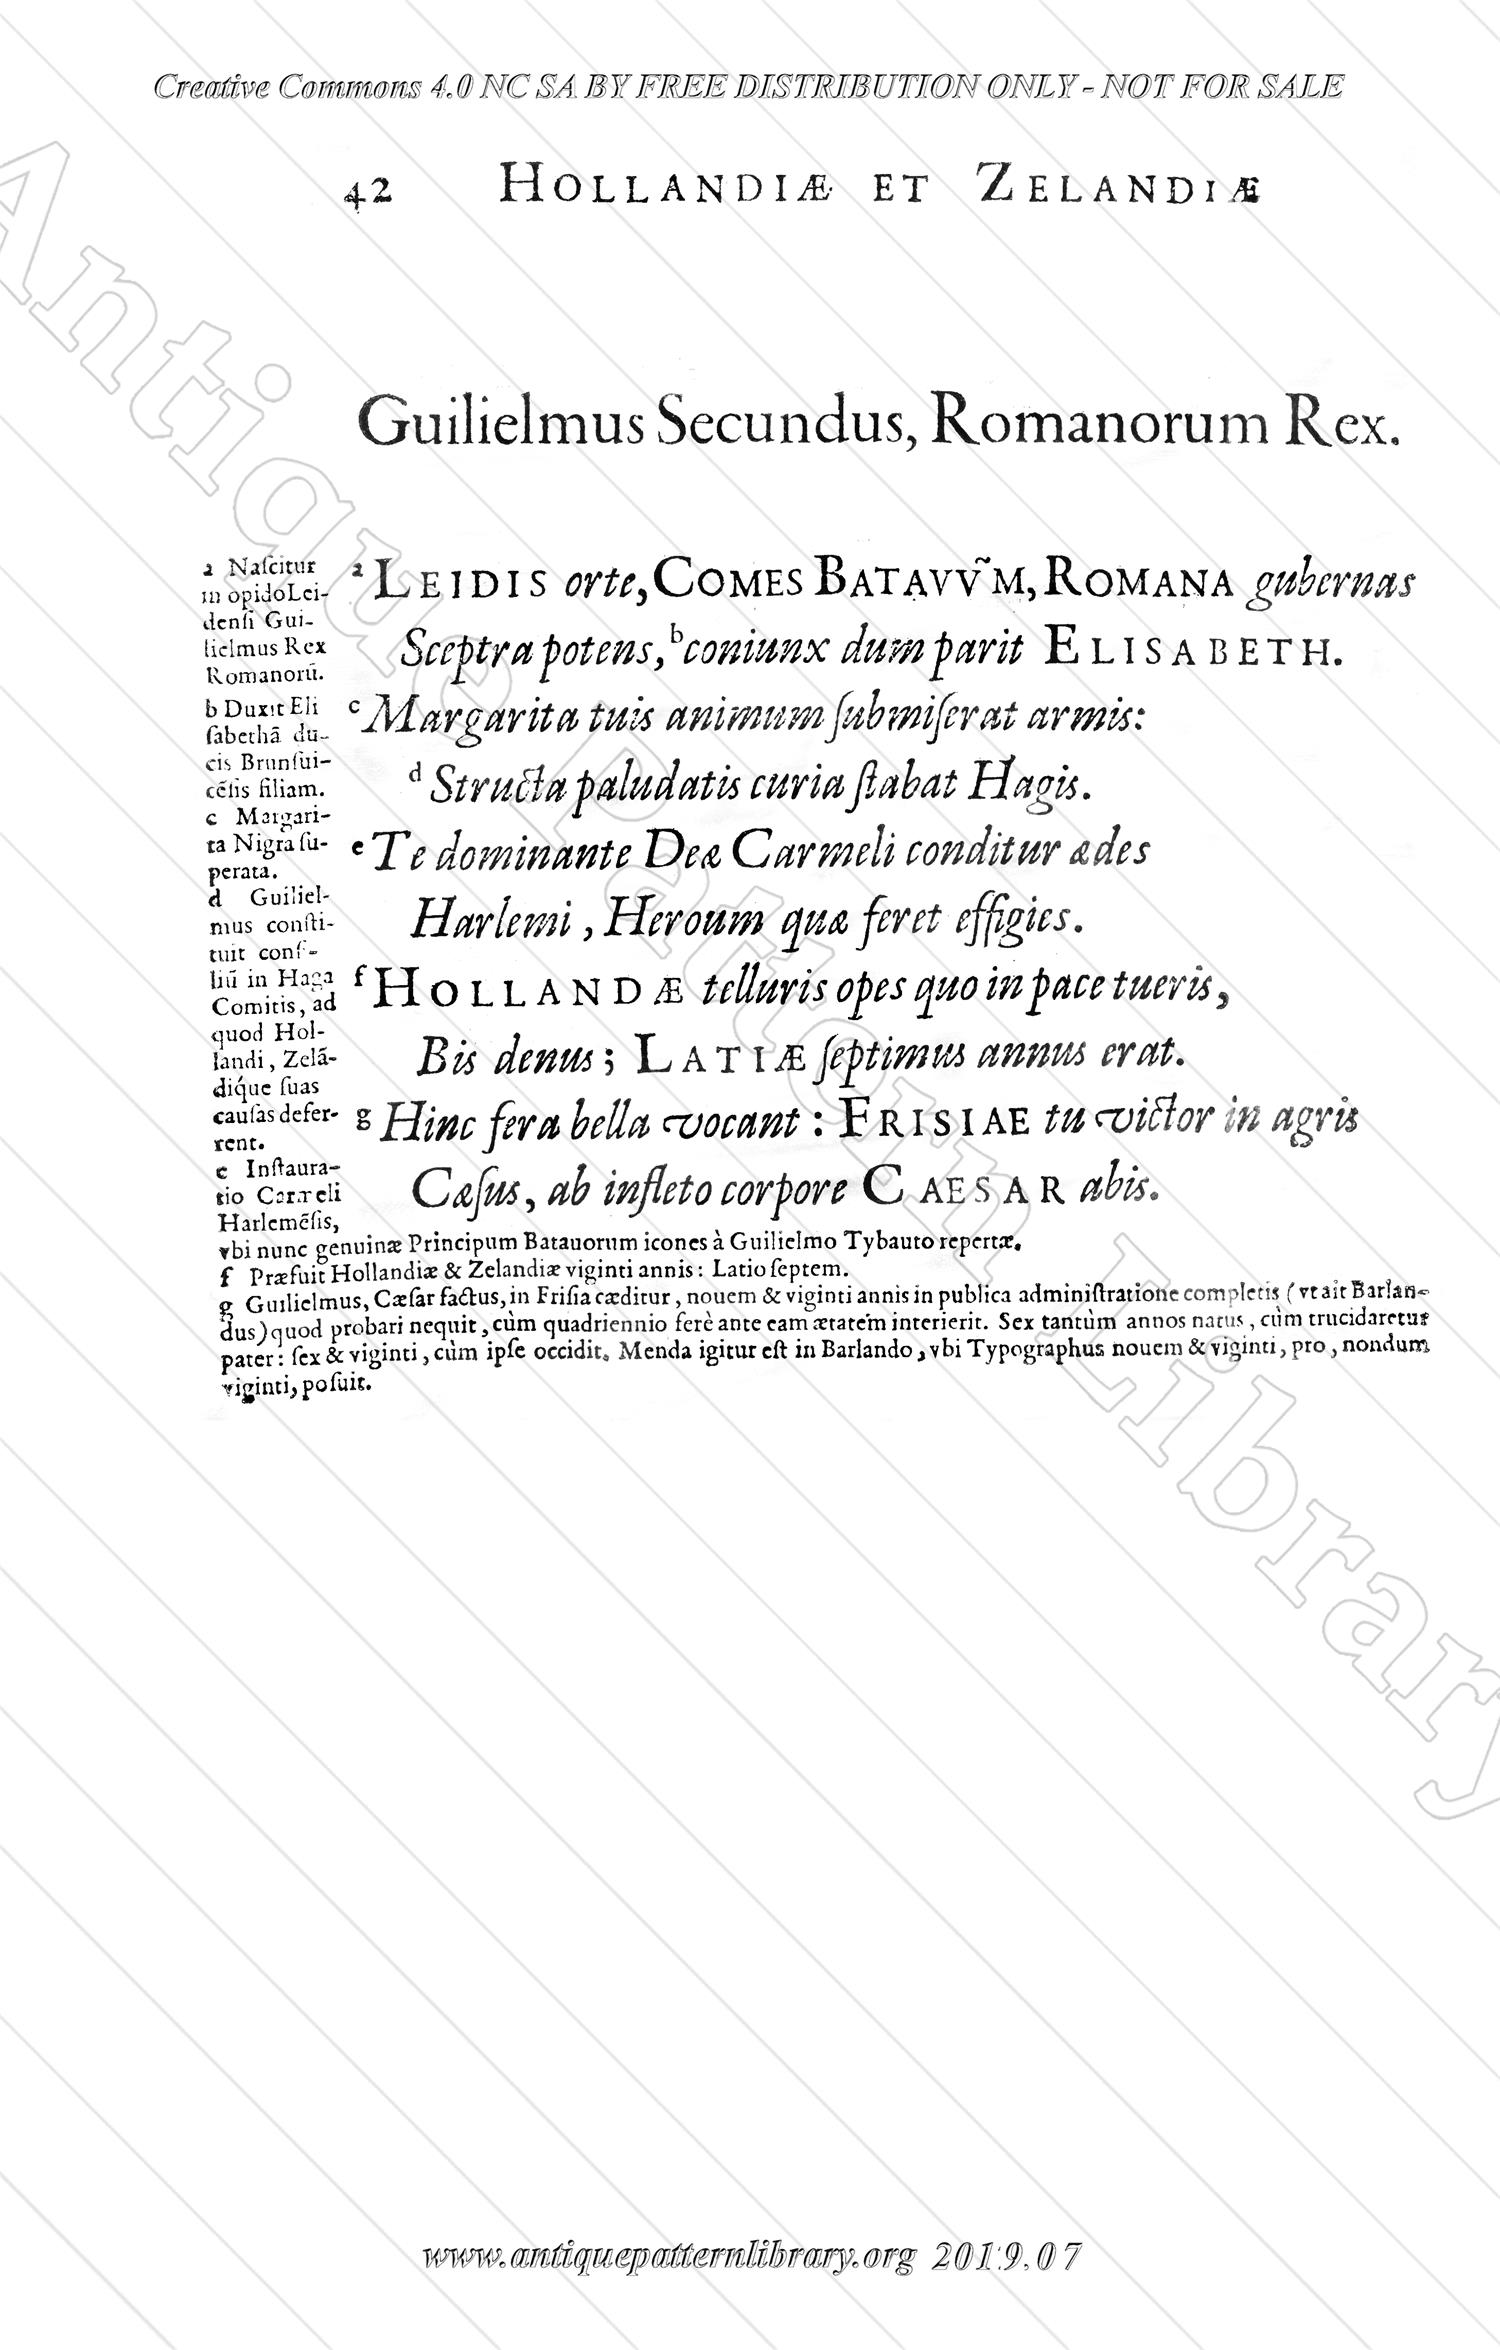 Creative Commons 4.0 NC SA BY FREE DISTRIBUTION ONLY - NOT FOR SALE
42 HOLLANDIÆ ET ZELANDIÆ
Guilielmus Secundus, Romanorum Rex.
a LEIDIS orte, COMES BATAVṼM, ROMANA gubernas
Sceptra potens, b coniunx dum parit ELISABETH.
c Margarita tuis animum ſubmiſerat armis:
d Structa paludatis curia ſtabat Hagis.
e Te dominante Deæ Carmeli conditur ædes
Harlemi, Heroum quæ feret effigies.
f HOLLANDÆ telluris opes quo in pace tueris,
Bis denus; LATIÆ ſeptimus annus erat.
g Hinc fera bella vocant: FRISIAE tu victor in agris
Cæſus, ab infleto corpore CAESAR abis.
a Naſcitur
in opido Lei-
denſi Gui-
lielmus Rex
Romanorũ.
b Duxit Eli
ſabethã du-
cis Brunſui-
cẽſis filiam.
c Margari-
ta Nigra ſu-
perata.
d Guiliel-
mus conſti-
tuit conſi-
liũ in Haga
Comitis, ad
quod Hol-
landi, Zelã-
diq́ue ſuas
cauſas defer-
rent.
e Inſtaura-
tio Carmeli
Harlemẽſis,
vbi nunc genuinæ Principum Batauorum icones à Guilielmo Tybauto repertæ.
f Præfuit Hollandiæ & Zelandiæ viginti annis: Latio ſeptem.
g Guilielmus, Cæſar factus, in Friſia cæditur, nouem & viginti annis in publica adminiſtratione completis (vt ait Barlan-
dus) quod probari nequit, cùm quadriennio ferè ante eam ætatem interierit. Sex tantùm annos natus, cùm trucidaretur
pater: ſex & viginti, cùm ipſe occidit. Menda igitur eſt in Barlando, vbi Typographus nouem & viginti, pro, nondum
viginti, poſuit.
Antique Pattern Library
www.antiquepatternlibrary.org 2019.07